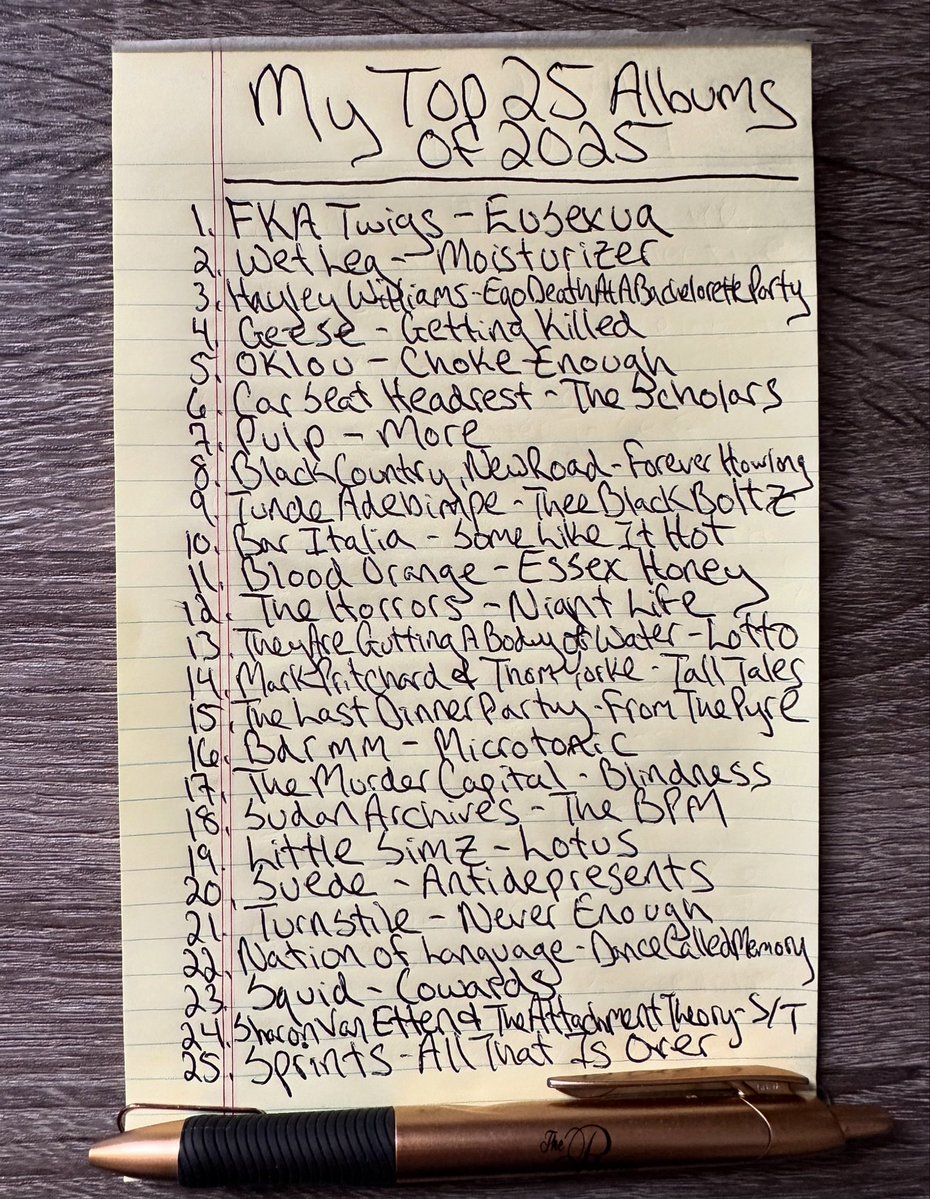 My Top 25 Albums
Of 2025
1. FKA Twigs - Eusexua
2. Wet Leg - Moisturizer
3. Hayley Williams - Ego Death At A Bachelorette Party
4. Geese - Getting Killed
5. Oklou - Choke Enough
6. Car Seat Headrest - The Scholars
7. Pulp - More
8. Black Country, New Road - Forever Howlong
9. Tunde Adebimpe - Thee Black Boltz
10. Bar Italia - Some Like It Hot
11. Blood Orange - Essex Honey
12. The Horrors - Night Life
13. They Are Gutting A Body Of Water - Lotto
14. Mark Pritchard & Thom Yorke - Tall Tales
15. The Last Dinner Party - From The Pyre
16. Bdrmm - Microtonic
17. The Murder Capital - Blindness
18. Sudan Archives - The BPM
19. Little Simz - Lotus
20. Suede - Antidepresents
21. Turnstile - Never Enough
22. Nation of Language - Dance Called Memory
23. Squid - Cowards
24. Sharon Van Etten & The Attachment Theory - S/T
25. Sprints - All That Is Over
The P